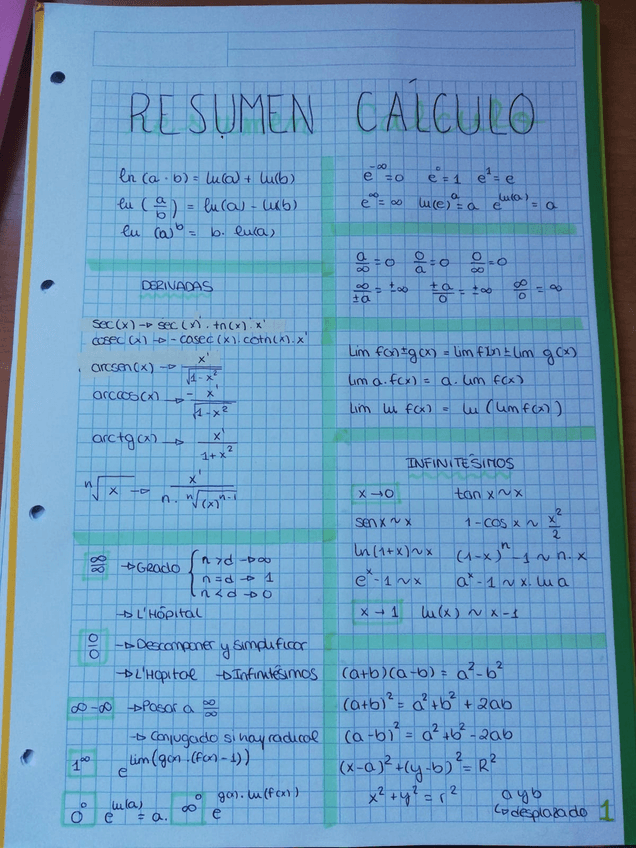 RESUMEN CÁLCULO
ln (a · b) = ln(a) + ln(b)
ln (a/b) = ln(a) - ln(b)
ln (a)^b = b · ln(a)
DERIVADAS
sec(x) → sec(x) · tn(x) · x'
cosec(x) → - cosec(x) · cotn(x) · x'
arcsen(x) → x'/√(1-x²)
arccos(x) → - x'/√(1-x²)
arctg(x) → x'/(1+x²)
ⁿ√x → x'/(n · ⁿ√((x)^(n-1)))
∞/∞ → Grado { n > d → ∞
n = d → 1
n < d → 0
→ L'Hôpital
0/0 → Descomponer y simplificar
→ L'Hopital → Infinitésimos
∞-∞ → Pasar a ∞/∞
→ Conjugado si hay radical
1^∞ e^(lim(g(x) · (f(x)-1)))
0^0 e^(ln(a)) = a. ∞^0 e^(g(x) · ln(f(x)))
e^(-∞) = 0 e^0 = 1 e^1 = e
e^∞ = ∞ ln(e)^a = a e^(ln(a)) = a
a/∞ = 0 0/a = 0 0/∞ = 0
∞/±a = ±∞ ±a/0 = ±∞ ∞/0 = ∞
lim f(x) ± g(x) = lim f(x) ± lim g(x)
lim a · f(x) = a · lim f(x)
lim ln f(x) = ln (lim f(x))
INFINITÉSIMOS
x → 0 tan x ~ x
sen x ~ x 1 - cos x ~ x²/2
ln(1+x) ~ x (1-x)^n - 1 ~ n · x
e^x - 1 ~ x a^x - 1 ~ x · ln a
x → 1 ln(x) ~ x - 1
(a+b)(a-b) = a² - b²
(a+b)² = a² + b² + 2ab
(a-b)² = a² + b² - 2ab
(x-a)² + (y-b)² = R²
x² + y² = r² a y b
↳ desplazado 1